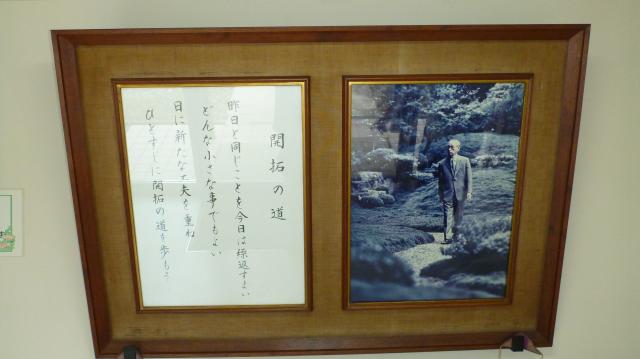 開拓の道
昨日と同じことを今日は繰返すまい
どんな小さな事でもよい
日に新たな工夫を重ね
ひとすじに開拓の道を歩もう